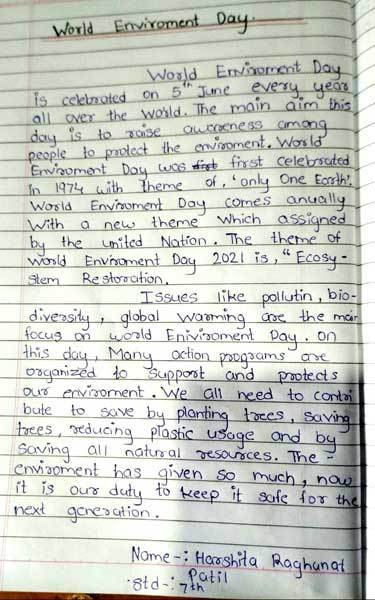 World Enviroment Day.
World Enviroment Day
is celebrated on 5th June every year
all over the World. The main aim this
day is to raise awareness among
people to protect the enviroment. World
Enviroment Day was first first celebrated
in 1974 with theme of, 'only One Earth'.
World Enviroment Day comes anually
With a new theme which assigned
by the united Nation. The theme of
World Enviroment Day 2021 is, "Ecosy-
stem Restoration.
Issues like pollutin, bio-
diversity, global warming are the main
focus on world Eniviroment Day. on
this day, Many action programs are
organized to support and protects
our enviroment. We all need to contri
bute to save by planting trees, saving
trees, reducing plastic usage and by
saving all natural resources. The -
enviroment has given so much, now
it is our duty to keep it safe for the
next generation.
Name-: Harshita Raghunat
Patil
Std-: 7th